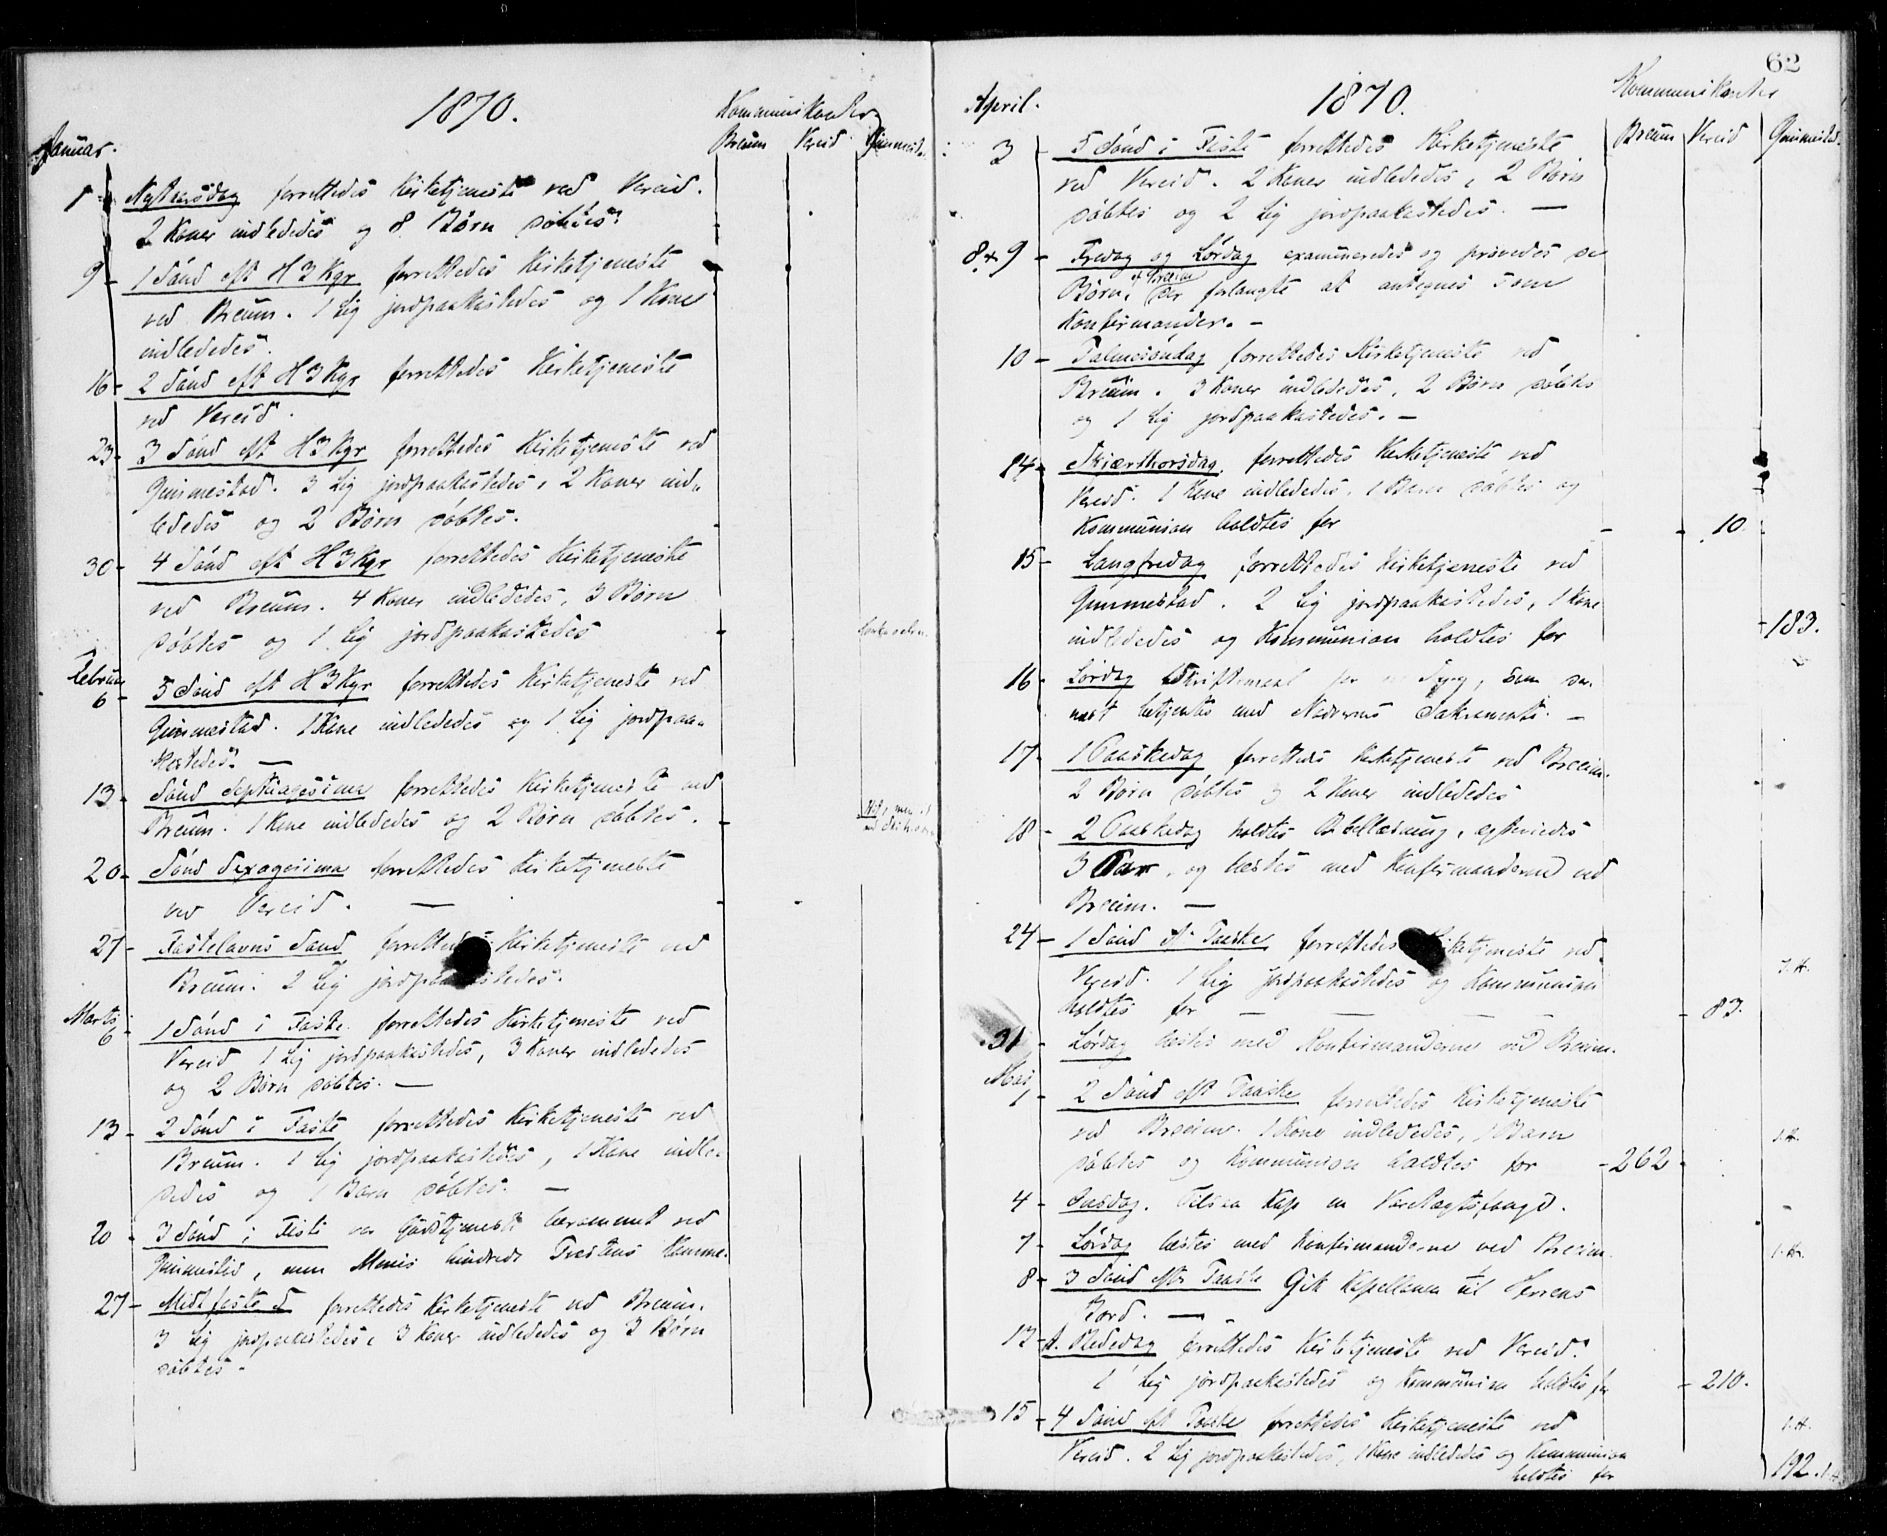 1870.
Kommunikanter
Januar.
Breum Vereid Gimmestad
1 Nytaarsdag forrettedes Kirketjeneste ved Vereid.
2 Koner indlededes og 8 Børn døbtes.
9 - 1 Sønd eft H 3 Kgr forrettedes Kirketjeneste
ved Breum. 1 Lig jordpaakastedes og 1 Kone
indlededes.
16 - 2 Sønd eft H 3 Kgr forrettedes Kirketjeneste
ved Vereid.
23 - 3 Sønd eft H 3 Kgr forrettedes Kirketjeneste ved
Gimmestad. 3 Lig jordpaakastedes, 2 Koner ind-
lededes og 2 Børn døbtes.
30 - 4 Sønd eft H 3 Kgr forrettedes Kirketjeneste
ved Breum. 4 Koner indlededes, 3 Børn
døbtes og 1 Lig jordpaakastedes
Februar
6 - 5 Sønd eft H 3 Kgr forrettedes Kirketjeneste ved
Gimmestad. 1 Kone indlededes og 1 Lig jordpaa-
kastedes. —
13 - Sønd Septuagesima forrettedes Kirketjeneste ved
Breum. 1 Kone indlededes og 2 Børn døbtes.
20 - Sønd Sexagesima forrettedes Kirketjeneste
ved Vereid. —
27 - Fastelavns Sønd forrettedes Kirketjeneste ved
Breum. 2 Lig jordpaakastedes.
Marts
6 1 Sønd i Faste forrettedes Kirketjeneste ved
Vereid 1 Lig jordpaakastedes, 3 Koner indlededes
og 2 Børn døbtes. —
13 - 2 Sønd i Faste forrettedes Kirketjeneste ved
Breum. 1 Lig jordpaakastedes, 1 Kone indle-
dedes og 1 Barn døbtes. —
20 - 3 Sønd i Faste var Gudstjeneste berammet ved
Gimmestad, men Menis hindrede Præstens Komme.
27 - Midtfaste S forrettedes Kirketjeneste ved Breum.
3 Lig jordpaakastedes, 3 Koner indlededes og 3 Børn
døbtes -
62
April.
1870.
Kommunikanter
Breum Vereid Gimmestad.
3 - 5 Sønd i Faste forrettedes Kirketjeneste
ved Vereid. 2 Koner indlededes, 2 Børn
døbtes og 2 Lig jordpaakastedes. —
8 & 9 - Fredag og Lørdag examineredes og prøvedes de
Børn, af Breum der forlangte at antegnes som
Konfirmander. -
10 - Palmesøndag forrettedes Kirketjeneste ved
Breum. 3 Koner indlededes, 2 Børn døbtes
og 1 Lig jordpaakastedes. -
14 - Skjærthorsdag forrettedes Kirketjeneste ved
Vereid. 1 Kone indlededes, 1 Barn døbtes og
Kommunion holdtes for - 10.
15 - Langfredag forrettedes Kirketjeneste ved
Gimmestad. 2 Lig jordpaakastedes, 1 Kone
indlededes og Kommunion holdtes for - 183.
16 - Lørdag Skriftemaal for en Syg, som der-
næst betjentes med Nadverens Sakramente. -
17 - 1 Paaskedag forrettedes Kirketjeneste ved Breum.
2 Børn døbtes og 2 Koner indlededes
18 - 2 Paaskedag holdtes Bibellæsning, egteviedes
3 Par, og læstes med Konfirmanderne ved
Breum. —
24 - 1 Sønd eft Paaske forrettedes Kirketjeneste ved
Vereid. 1 Lig jordpaakastedes og Kommunion
holdtes for — — — - 83. S.H.
31 - Lørdag læstes med Konfirmanderne ved Breum.
Mai
1 - 2 Sønd eft Paaske forrettedes Kirketjeneste
ved Breum. 1 Kone indlededes, 1 Barn
døbtes og Kommunion holdtes for - 262 - S.H.
4 - Onsdag. Tilsaa Kap en Varetægtsfange.
7 - Lørdag læstes med Konfirmanderne ved Breum.
8 - 3 Sønd eftr Paaske Gik Kapellanen til Herrens
Bord. —
13 - A. Bededag forrettedes Kirketjeneste ved Vereid.
1 Lig jordpaakastedes og Kommunion holdtes for - 210.
15 - 4 Sønd eft Paaske forrettedes Kirketjeneste ved
Vereid. 2 Lig jordpaakastedes, 1 Kone indlededes og Kommunion
holdtes for 192.